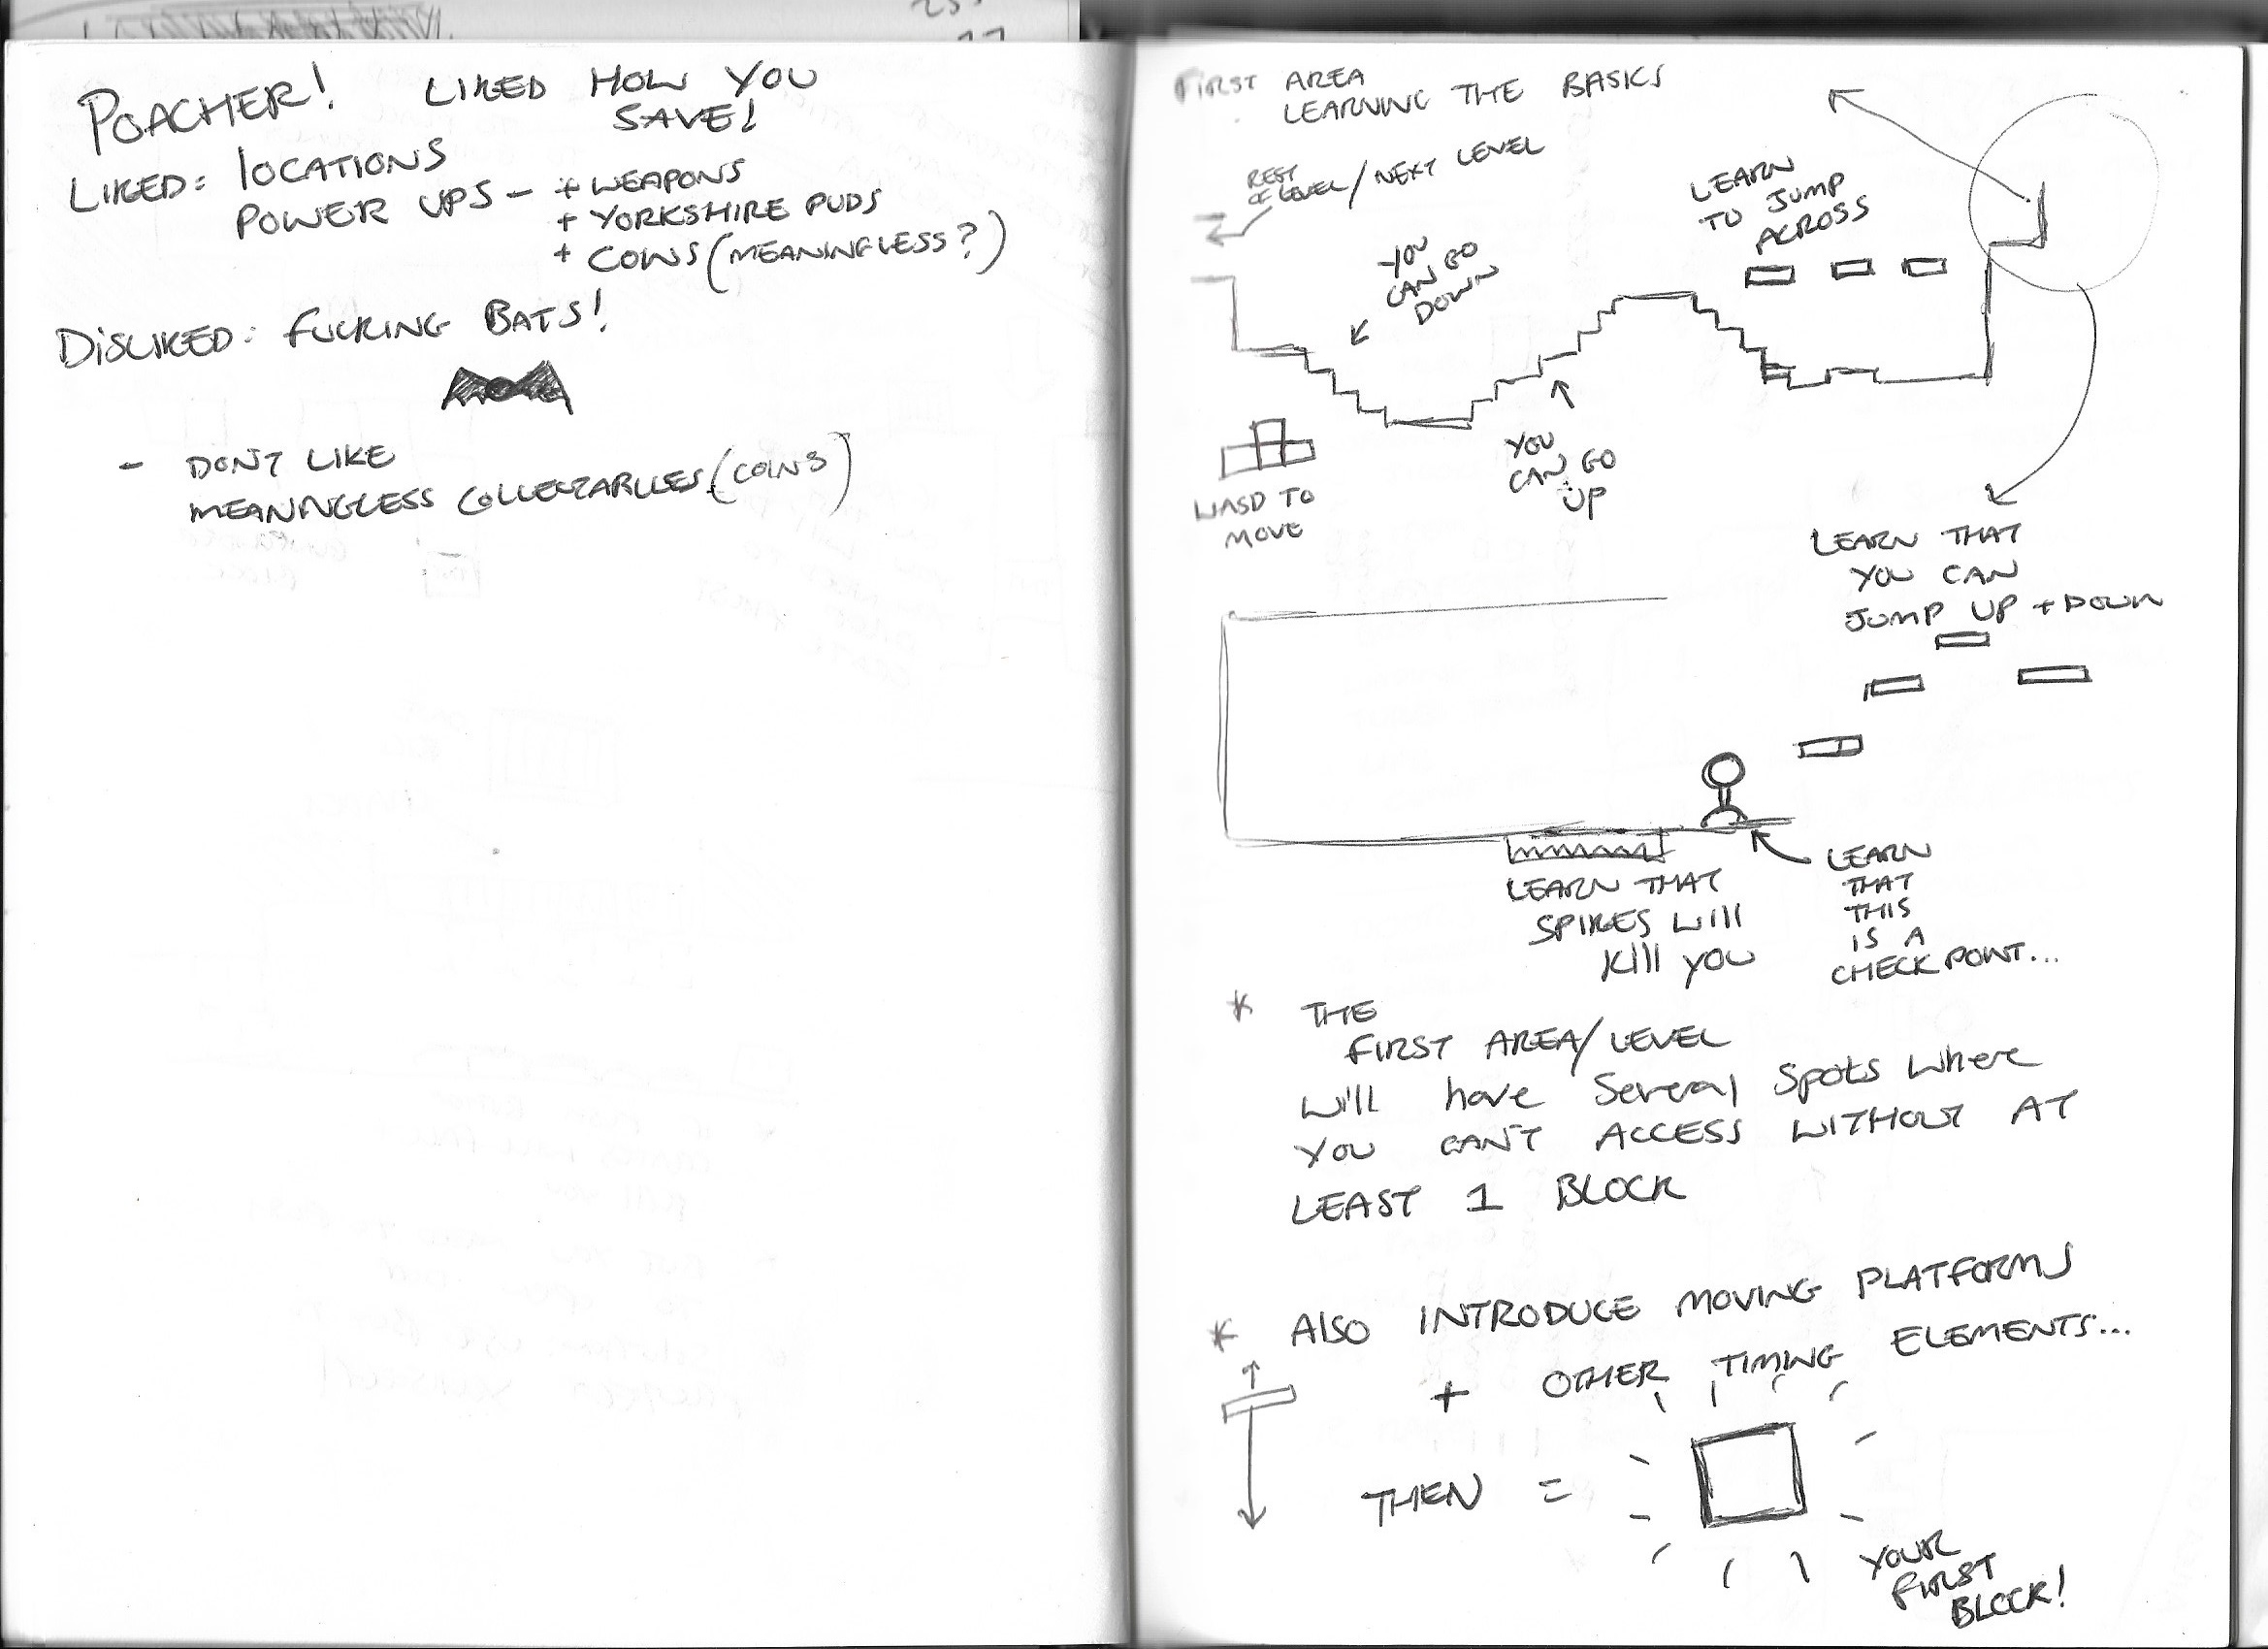 POACHER! LIKED HOW YOU
SAVE!
LIKED: LOCATIONS
POWER UPS - + WEAPONS
+ YORKSHIRE PUDS
+ COWS (MEANINGLESS?)
DISLIKED: FUCKING BATS!
- DON'T LIKE
MEANINGLESS COLLECTABLLES (COINS)
FIRST AREA
LEARNING THE BASICS
REST
OF LEVEL / NEXT LEVEL
YOU
CAN GO
DOWN
LEARN
TO JUMP
ACROSS
WASD TO
MOVE
YOU
CAN GO
UP
LEARN THAT
YOU CAN
JUMP UP + DOWN
LEARN THAT
SPIKES WILL
KILL YOU
LEARN
THAT
THIS
IS A
CHECKPOINT...
* THE
FIRST AREA/LEVEL
WILL have Several Spots Where
YOU CAN'T ACCESS WITHOUT AT
LEAST 1 BLOCK
* ALSO INTRODUCE MOVING PLATFORMS
+ OTHER TIMING ELEMENTS...
THEN =
YOUR
FIRST
BLOCK!